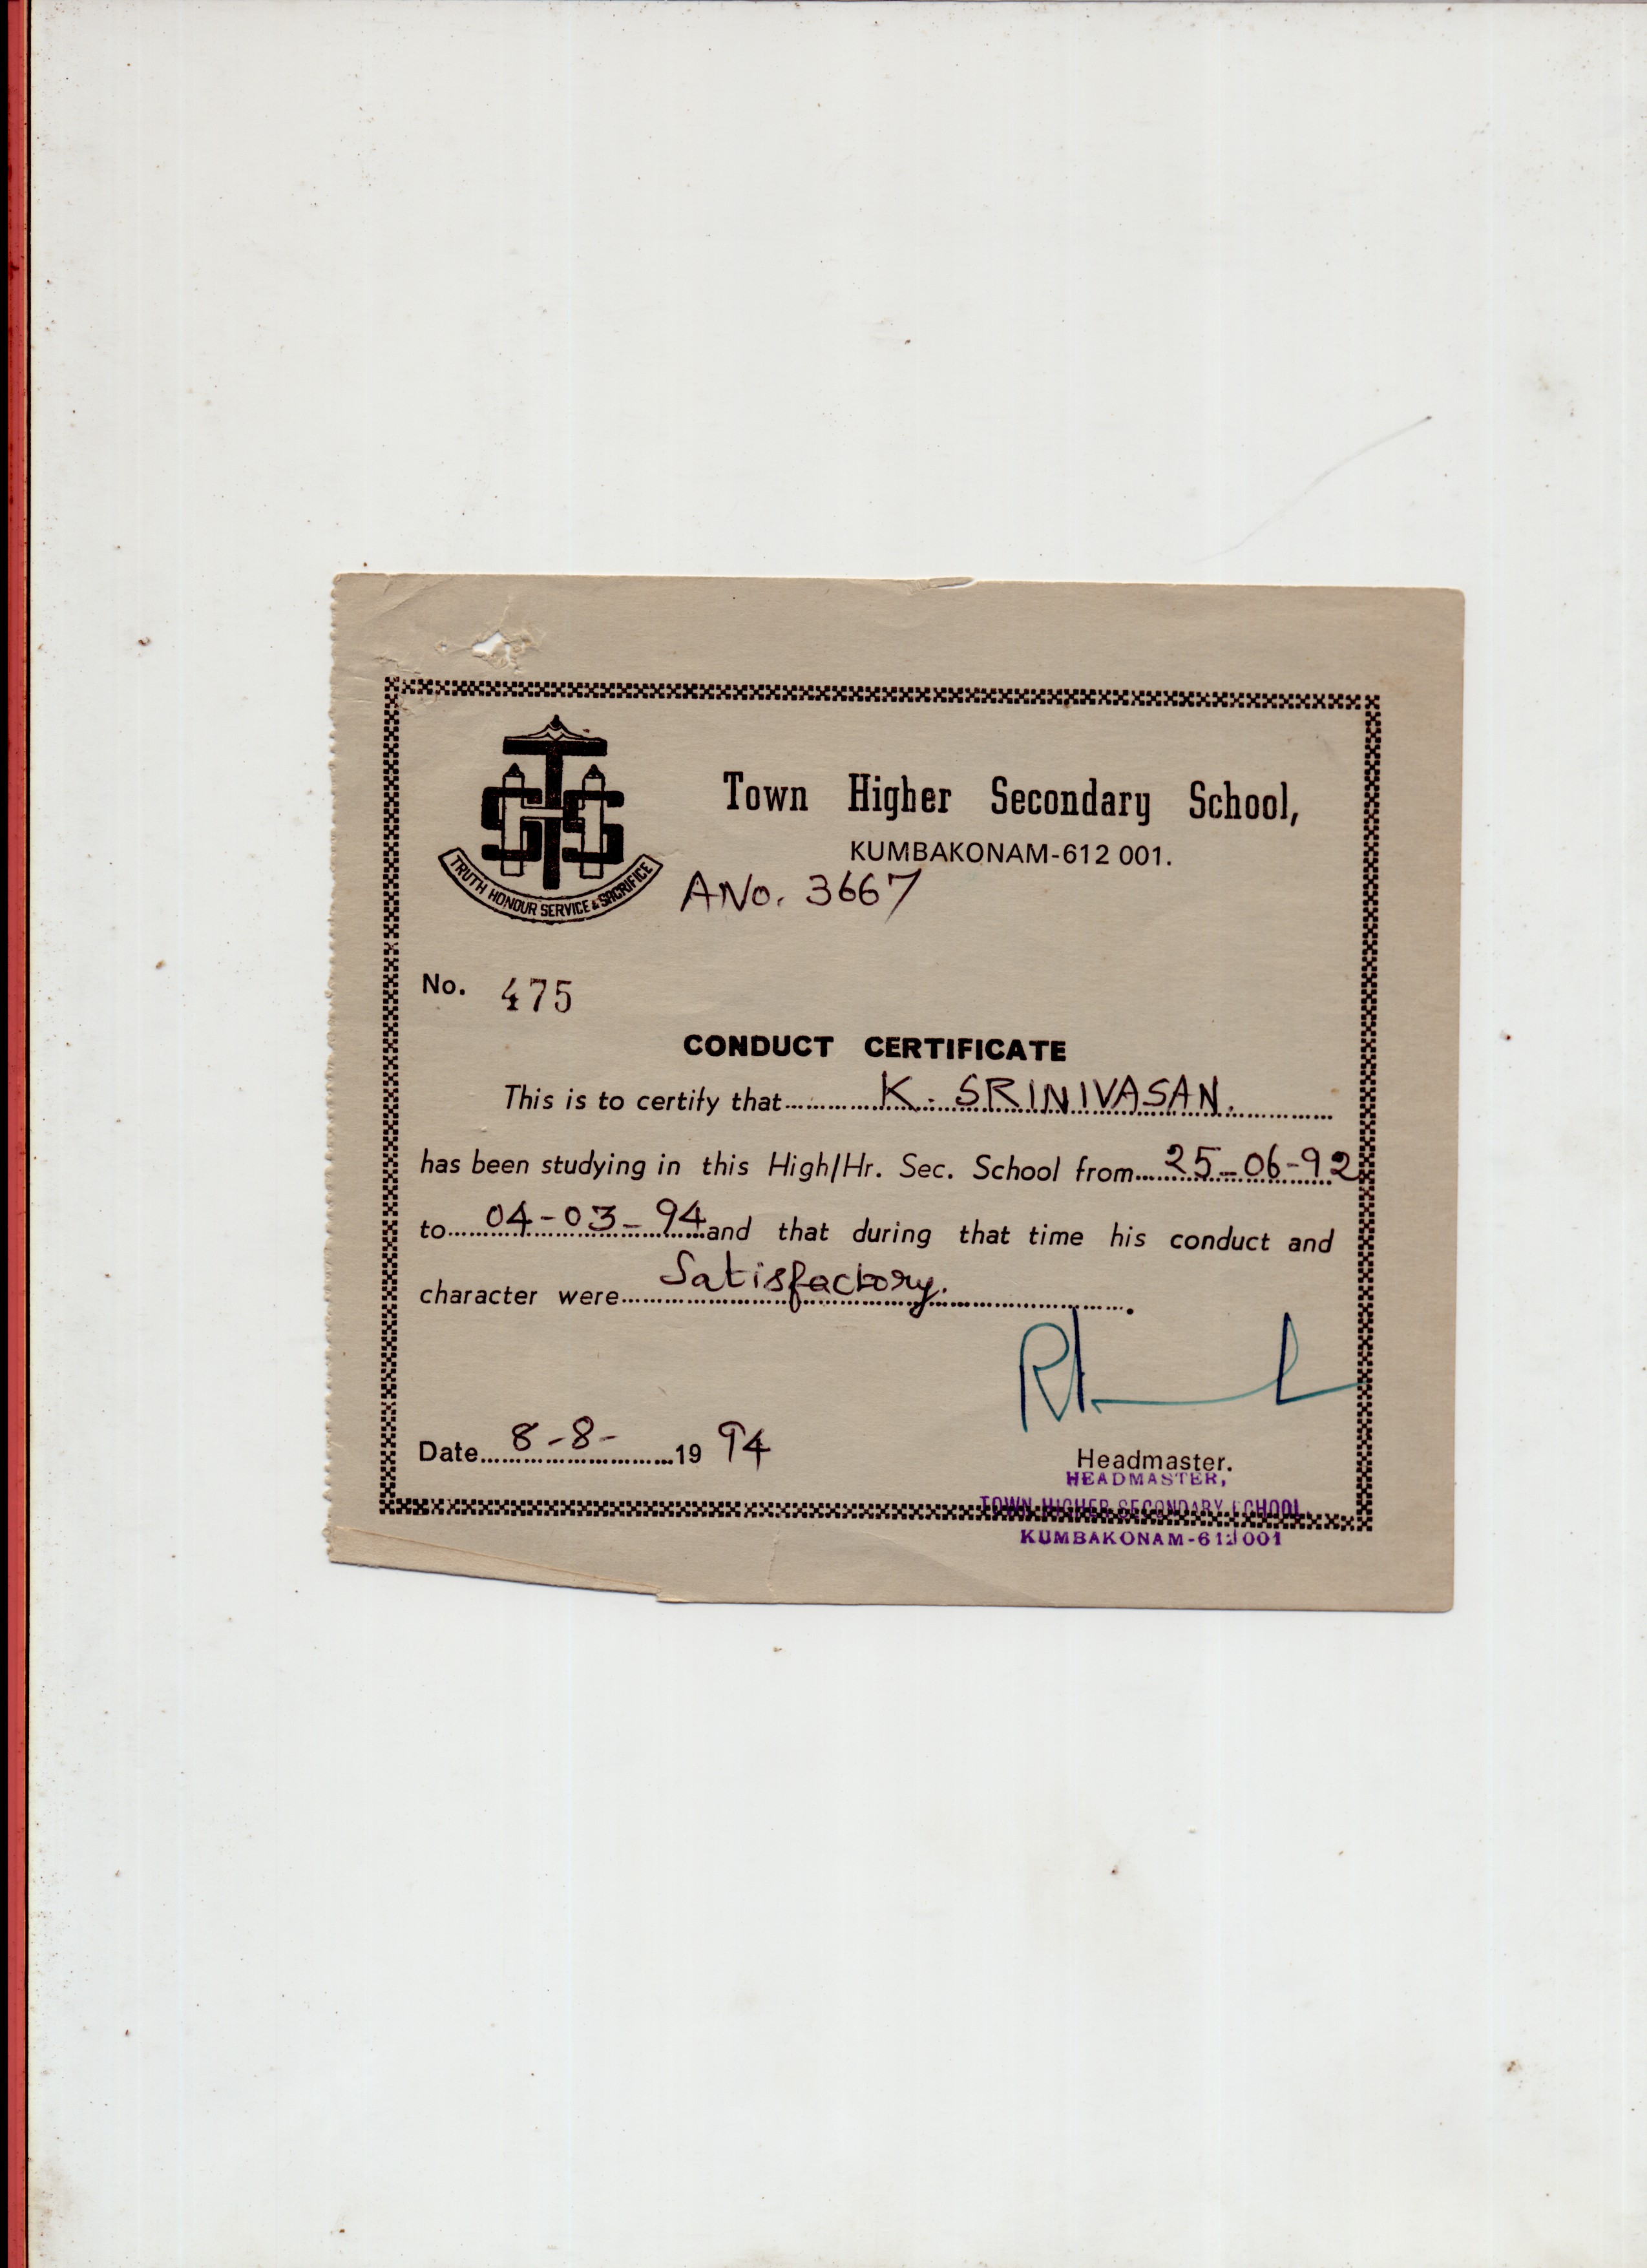 Town Higher Secondary School,
KUMBAKONAM-612 001.
TRUTH HONOUR SERVICE & SACRIFICE
ANo. 3667
No. 475
CONDUCT CERTIFICATE
This is to certify that K. SRINIVASAN.
has been studying in this High/Hr. Sec. School from 25-06-92
to 04-03-94 and that during that time his conduct and
character were Satisfactory.
Date 8-8- 19 94
Headmaster.
HEADMASTER,
TOWN HIGHER SECONDARY SCHOOL
KUMBAKONAM-612001